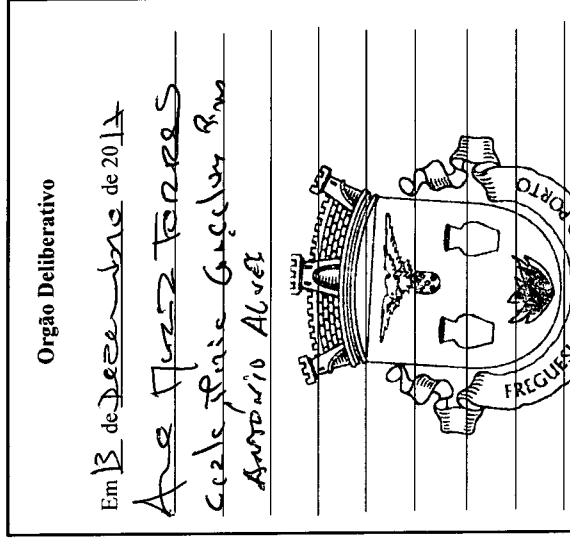 Orgão Deliberativo
Em 13 de Dezembro de 2017
Ana Muniz Torres
Maria Gonçalves
António Alves
FREGUESI
PORTO